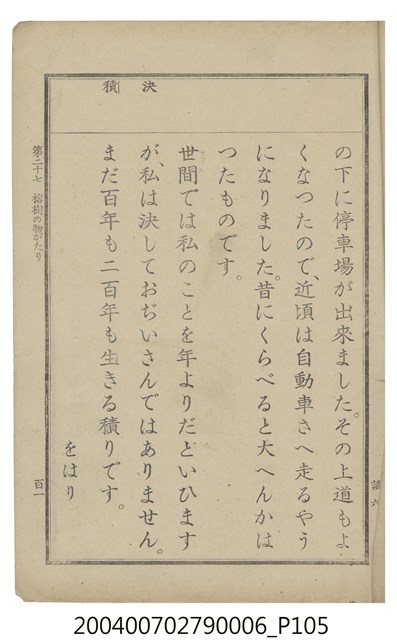 決
積
の下に停車場が出來ました。その上道もよ
くなつたので、近頃は自動車さへ走るやう
になりました。昔にくらべると大へんかは
つたものです。
世間では私のことを年よりだといひます
が、私は決しておぢいさんではありません。
まだ百年も二百年も生きる積りです。
をはり
第二十七 榕樹の物がたり
百一
讀六
200400702790006_P105